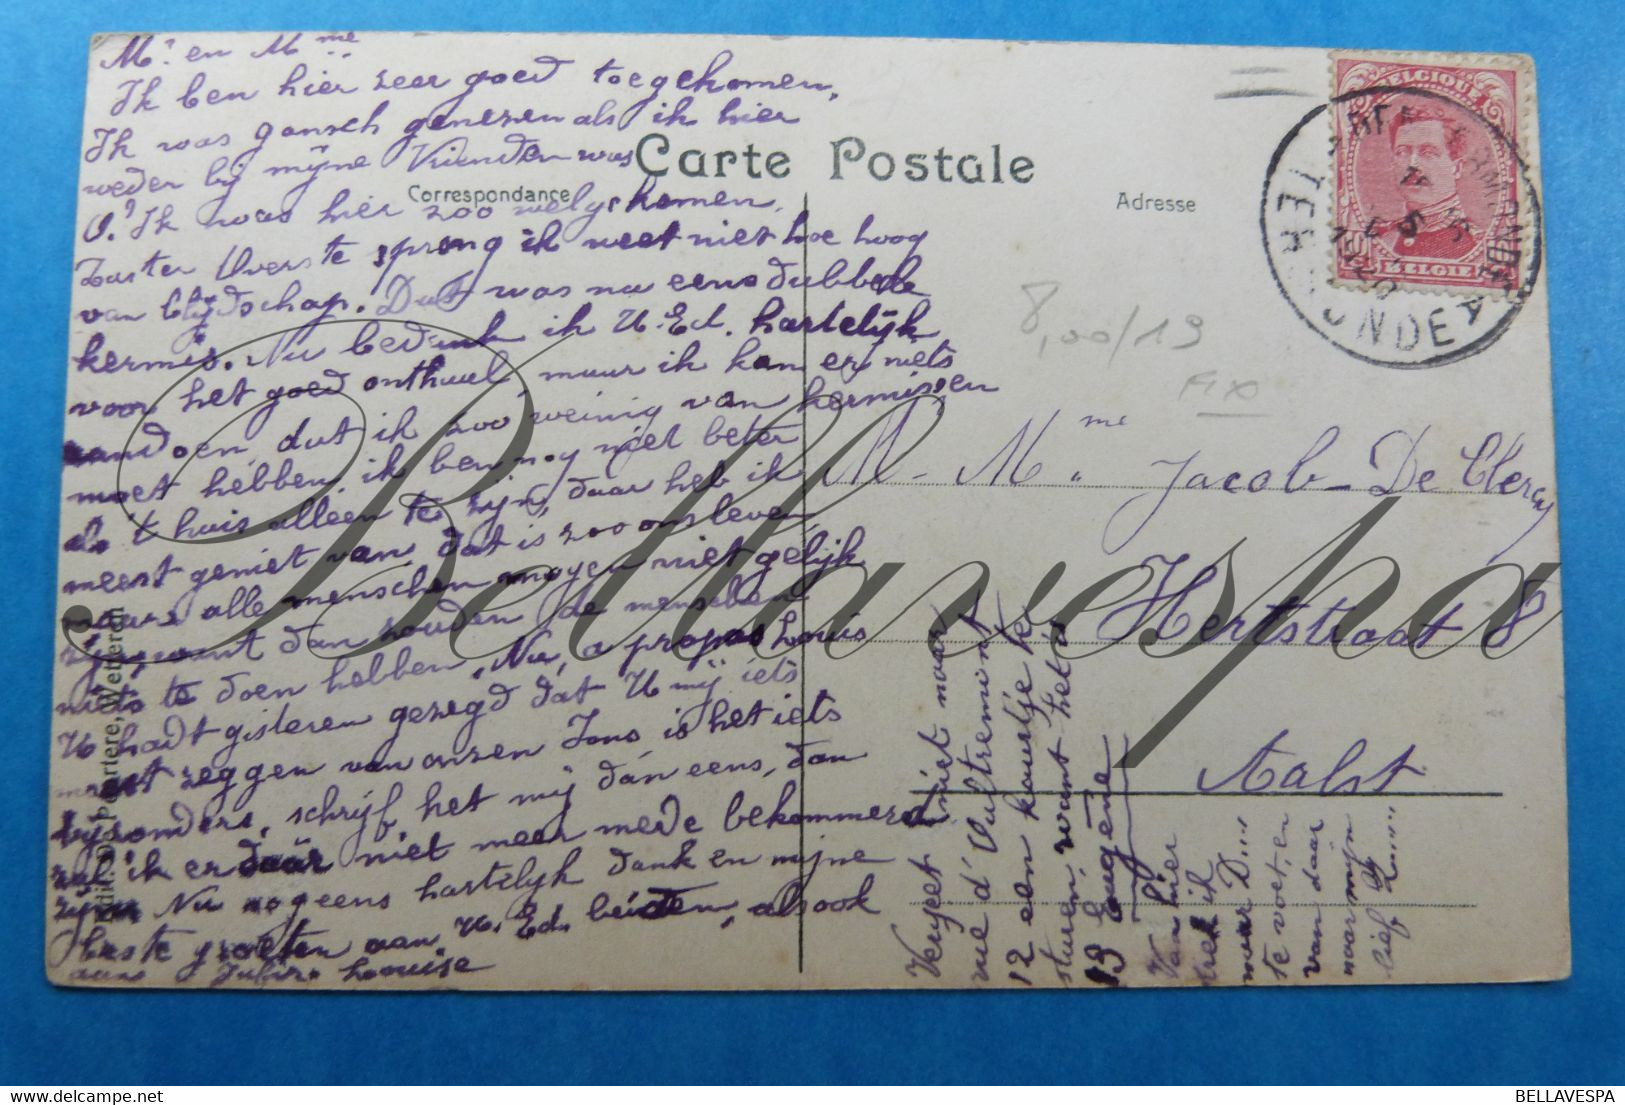 Mr. en Mme
Ik ben hier zeer goed toegekomen,
Ik was gansch genezen als ik hier
weder bij mijne Vrienden was
O! Ik was hier zoo welgekomen,
Zuster Overste sprong ik weet niet hoe hoog
van blijdschap. Dat was nu eens dubbele
kermis. Nu bedank ik U. Ed. hartelijk
voor het goed onthaal, maar ik kan er niets
aandoen, dat ik zoo weinig van kermissen
moet hebben, ik ben nog niet beter
als 't huis alleen te zijn, daar heb ik
meest geniet van, dat is zoo ons leven,
alle menschen mogen niet gelijk
zijn, want dan zouden de menschen
niets te doen hebben. Nu, a propos Louis
U hadt gisteren gezegd dat U mij iets
moest zeggen van onzen Jons is het iets
bijzonders, schrijf het mij dan eens, dan
zal ik er daar niet meer mede bekommerd
zijn. Nu nog eens hartelijk dank en mijne
beste groeten aan U. Ed. beiden, alsook
aan Louise
Carte Postale
Correspondance
Adresse
BELGIQUE
BELGIË
TERMONDE
DENDERMONDE
1920
8,00/19
FIX
M. Mme Jacob-De Clercq
Hertstraat 8
Aalst
Vergeet niet naar
rue d'Oultremont
12 een kaartje te
sturen, want het is
13 Eugène
Van hier
trek ik
naar D....
te voet, en
van daar
naar mijn
lief
Edit. De Pourtere, Wetteren
Bellavespa
BELLAVESPA